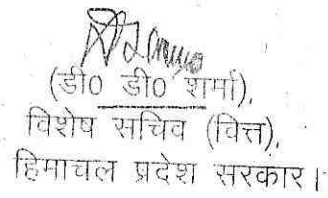 (डी0 डी0 शर्मा),
विशेष सचिव (वित्त),
हिमाचल प्रदेश सरकार।